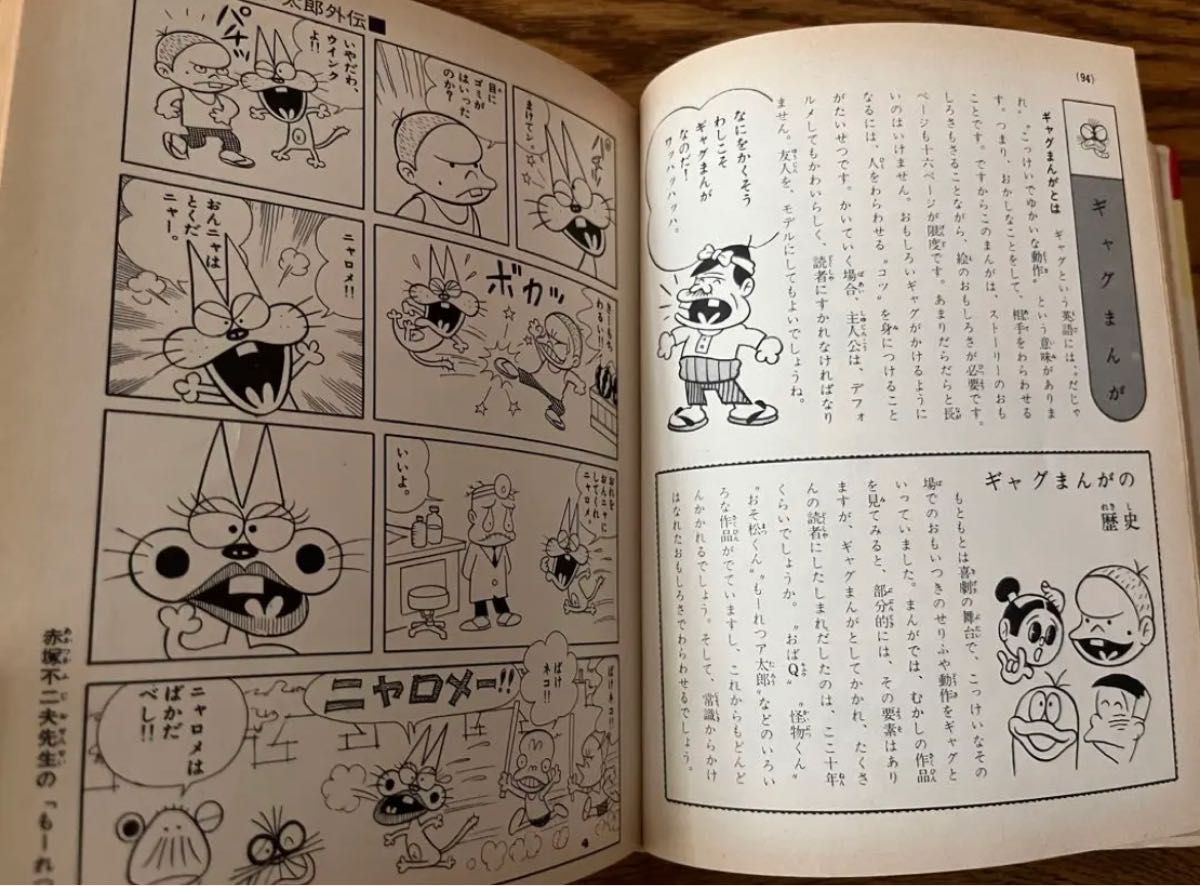 (94)
ギャグまんが
ギャグまんがとは　ギャグという英語には、“だじゃ
れ、こっけいでゆかいな動作”という意味がありま
す。つまり、おかしなことをして、相手をわらわせる
ことです。ですからこのまんがは、ストーリーのおも
しろさもさることながら、絵のおもしろさが必要です。
ページも十六ページが限度です。あまりだらだらと長
いのはいけません。おもしろいギャグがかけるように
なるには、人をわらわせる“コツ”を身につけること
がたいせつです。かいていく場合、主人公は、デフォ
ルメしてもかわいらしく、読者にすかれなければなり
ません。友人を、モデルにしてもよいでしょうね。
なにをかくそう
わしこそ
ギャグまんが
なのだ！
ワッハッハッハ。
ギャグまんがの
歴史
もともとは喜劇の舞台で、こっけいなその
場でのおもいつきのせりふや動作をギャグと
いっていました。まんがでは、むかしの作品
を見てみると、部分的には、その要素はあり
ますが、ギャグまんがとしてかかれ、たくさ
んの読者にしたしまれだしたのは、ここ十年
くらいでしょうか。“おばQ”“怪物くん”
“おそ松くん”“もーれつア太郎”などのいろい
ろな作品がでていますし、これからもどんど
んかかれるでしょう。そして、常識からかけ
はなれたおもしろさでわらわせるでしょう。
太郎外伝■
まけてし。
目に
ゴミが
はいった
のか？
いやだわ、
ウインク
よ!!
パチッ
きーもち
わるい!!
ボカッ
ニャロメ!!
おんニャは
とくだ
ニャー。
おれを
おんニャに
してくれ
ニャロメ。
いいよ。
ばけネコ!!
ばけ
ネコ!!
ニャロメー!!
ニャロメは
ばかだ
べし!!
4
赤塚不二夫先生の「もーれつ